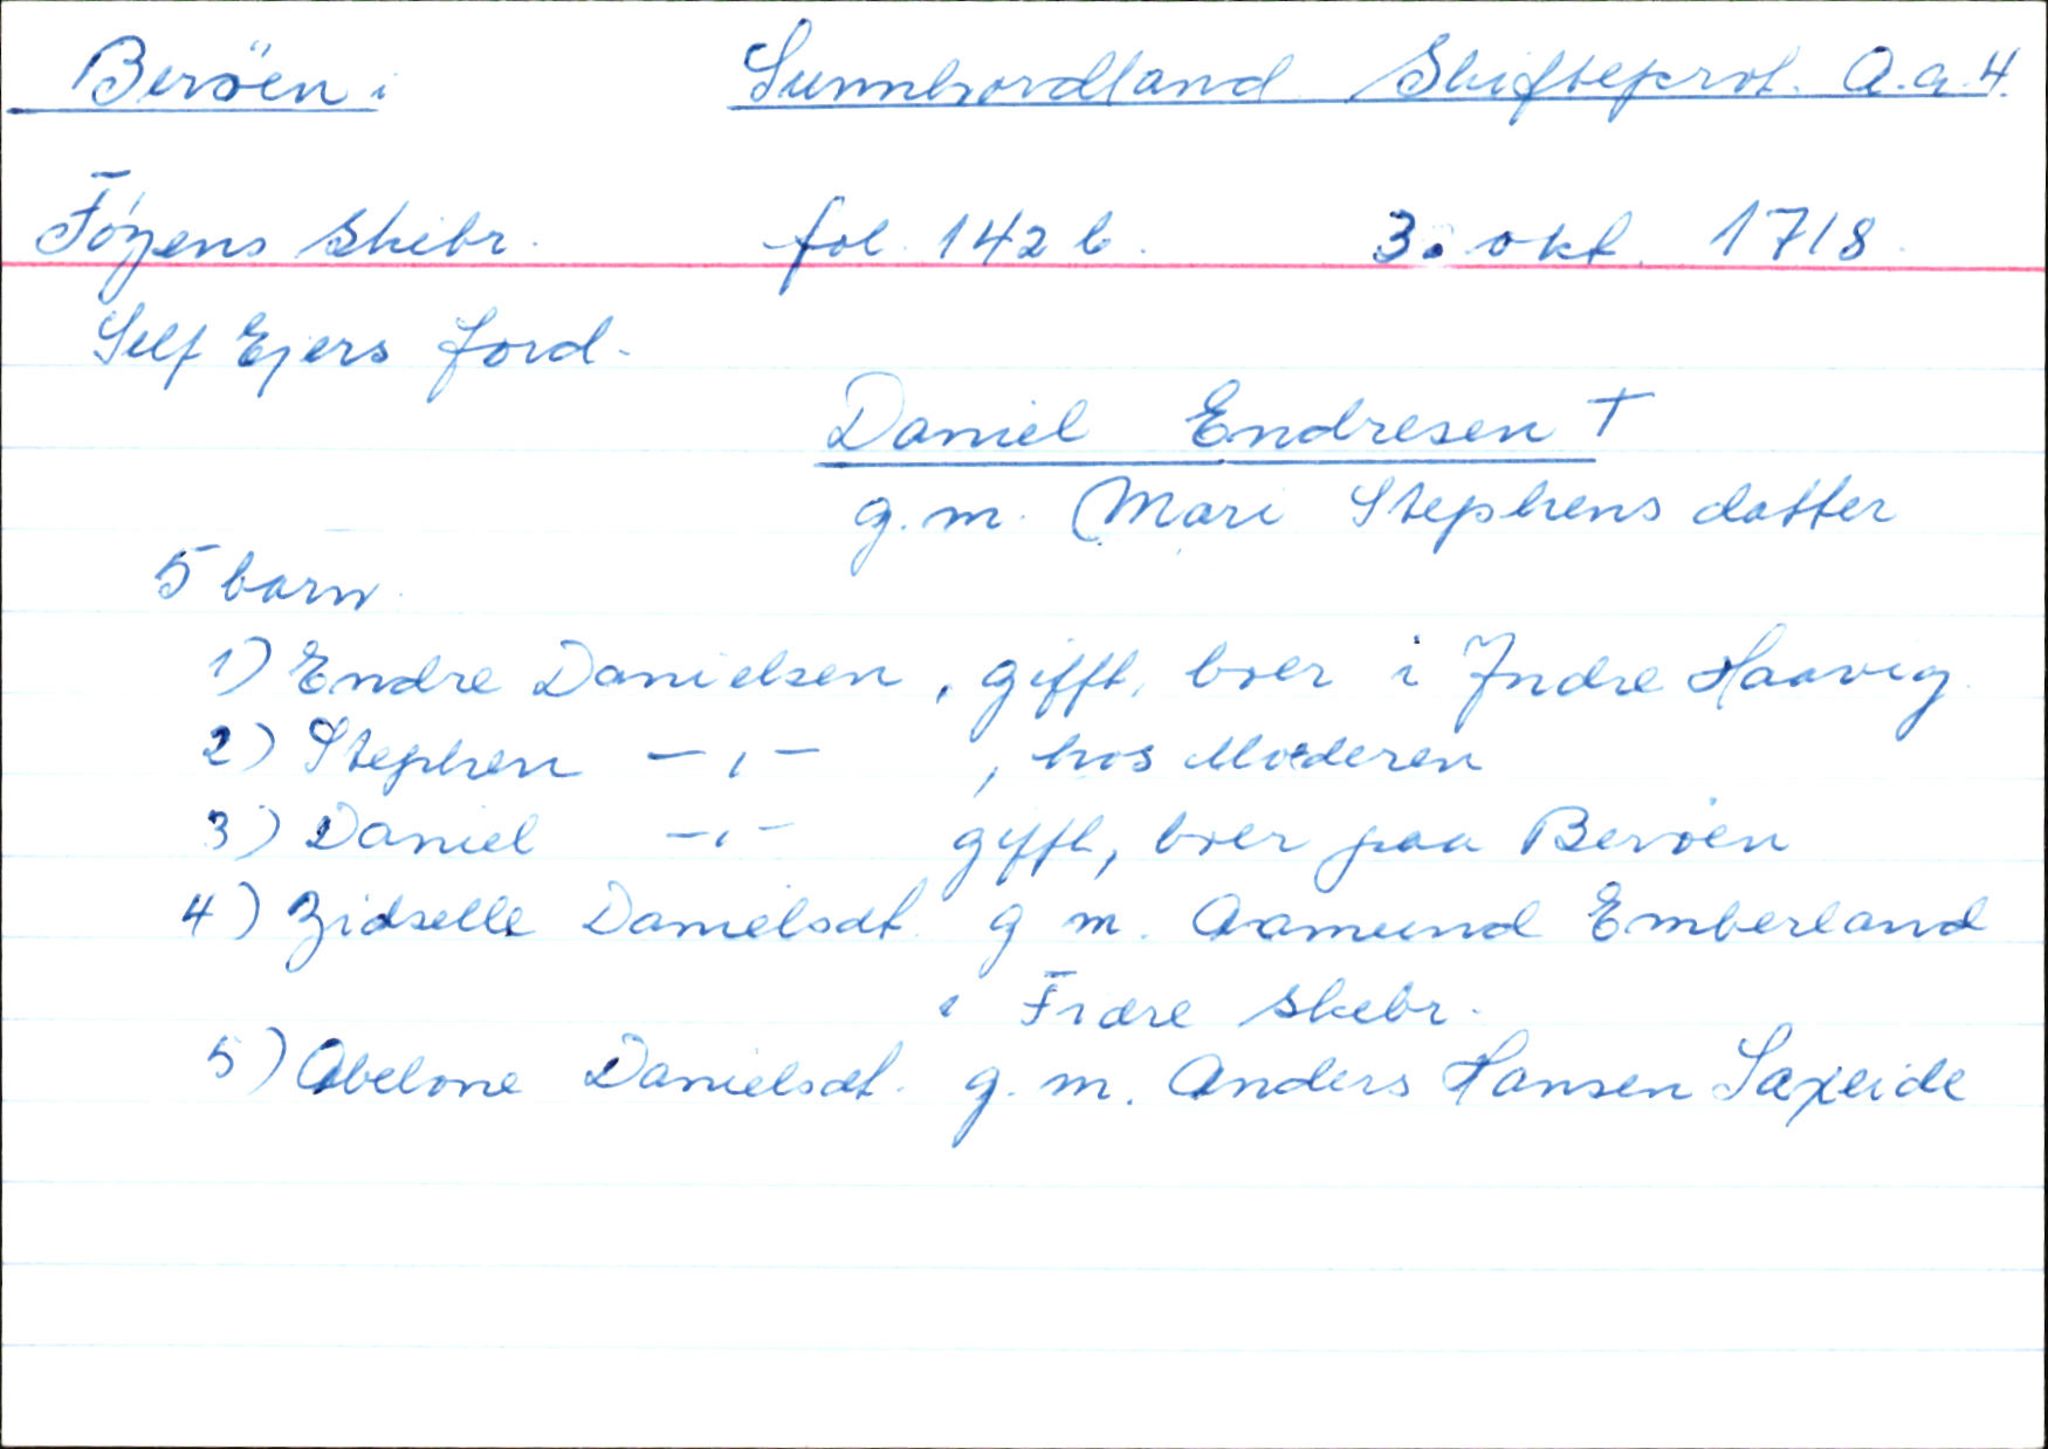 Berøen i Sunnhordland Skifteprot. A.a.4.
Föyens Skibr. fol. 142 b. 3. okt. 1718.
Self Ejers Jord.
Daniel Endresen †
g.m. Mari Stephens datter
5 barn.
1) Endre Danielsen, gifft, boer i Indre Haavig
2) Stephen -,,- , hos Moderen
3) Daniel -,,- gifft, boer paa Berøen
4) Zidselle Danielsdt. g m. Aamund Emberland
i Fiære Skebr.
5) Abelone Danielsdt. g. m. Anders Hansen Sæxeide